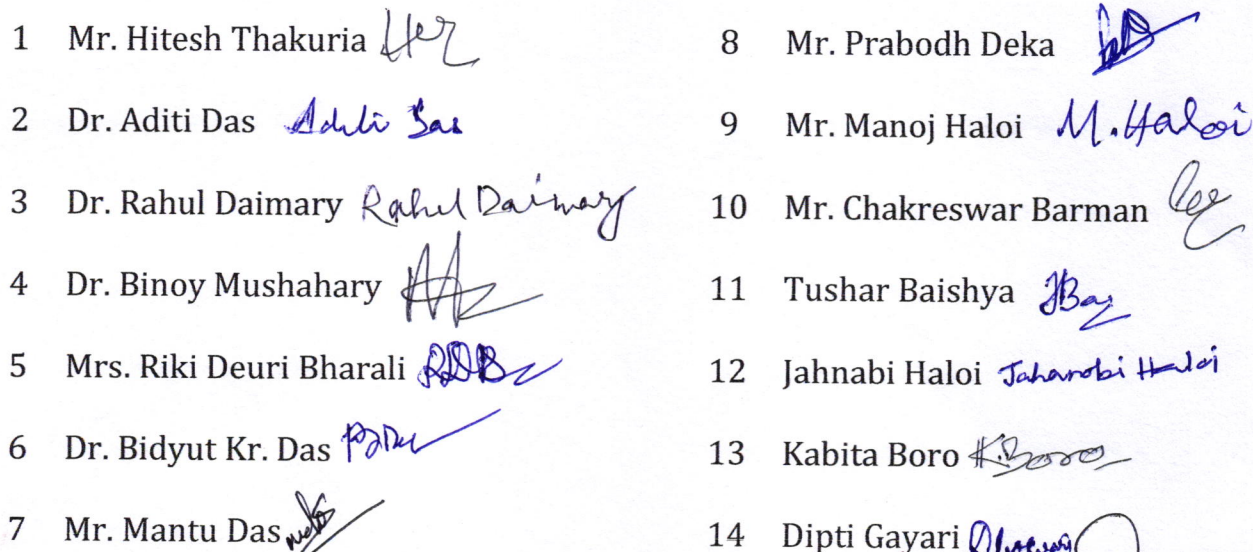 1 Mr. Hitesh Thakuria
2 Dr. Aditi Das Aditi Das
3 Dr. Rahul Daimary Rahul Daimary
4 Dr. Binoy Mushahary
5 Mrs. Riki Deuri Bharali RDB
6 Dr. Bidyut Kr. Das
7 Mr. Mantu Das
8 Mr. Prabodh Deka
9 Mr. Manoj Haloi M. Haloi
10 Mr. Chakreswar Barman
11 Tushar Baishya
12 Jahnabi Haloi Jahanobi Haloi
13 Kabita Boro K. Boro
14 Dipti Gayari